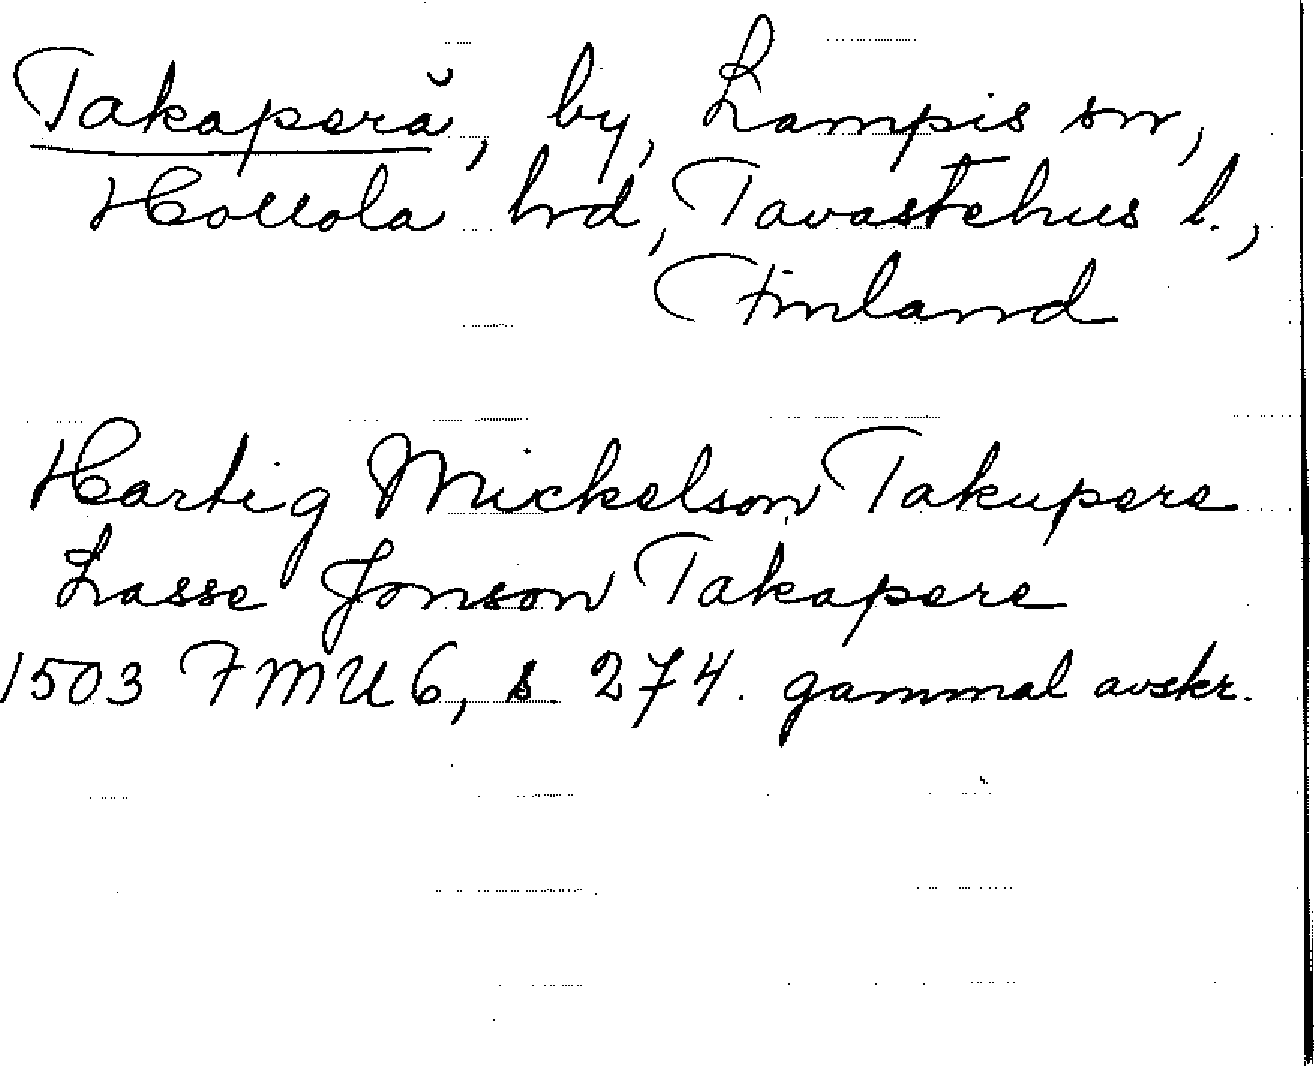 Takaperä, by, Lampis sn,
Hollola hrd, Tavastehus l.,
Finland
Hartig Mickelson Takupere
Lasse Jonson Takapere
1503 FMU 6, s 274. gammal avskr.